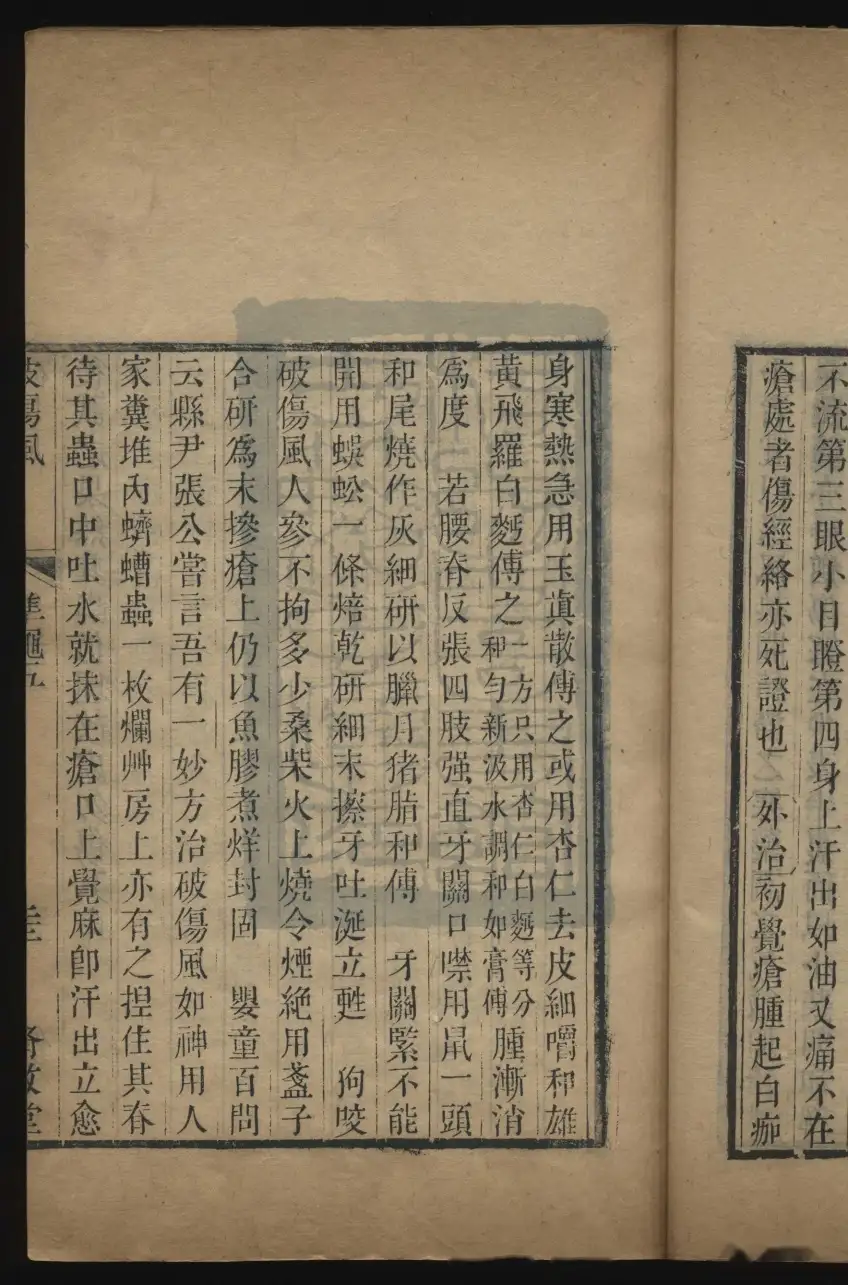 不流第三眼小目瞪第四身上汗出如油又痛不在
瘡處者傷經絡亦死證也 外治初覺瘡腫起白痂
身寒熱急用玉眞散傅之或用杏仁去皮細嚼和雄
黃飛羅白麪傅之一方只用杏仁白麪等分和勻新汲水調和如膏傅腫漸消
爲度 若腰脊反張四肢强直牙關口噤用鼠一頭
和尾燒作灰細研以臘月猪脂和傅 牙關緊不能
開用蜈蚣一條焙乾研細末擦牙吐涎立甦 狗咬
破傷風人參不拘多少桑柴火上燒令煙絶用盞子
合研爲末摻瘡上仍以魚膠煮烊封固 嬰童百問
云縣尹張公嘗言吾有一妙方治破傷風如神用人
家糞堆內蠐螬蟲一枚爛艸房上亦有之揑住其脊
待其蟲口中吐水就抹在瘡口上覺麻卽汗出立愈
破傷風 準繩五